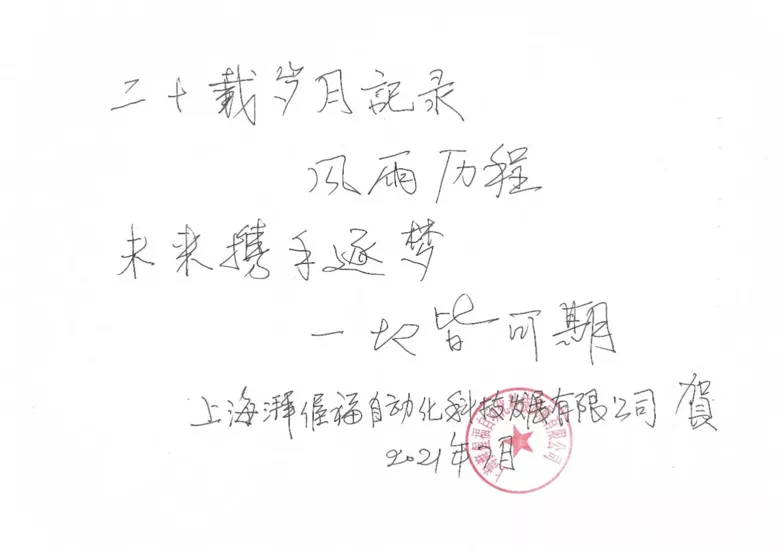 二十載岁月記录
风雨历程
未来攜手逐梦
一切皆可期
上海福自动化科技发展有限公司 賀
2021年7月
有限公司